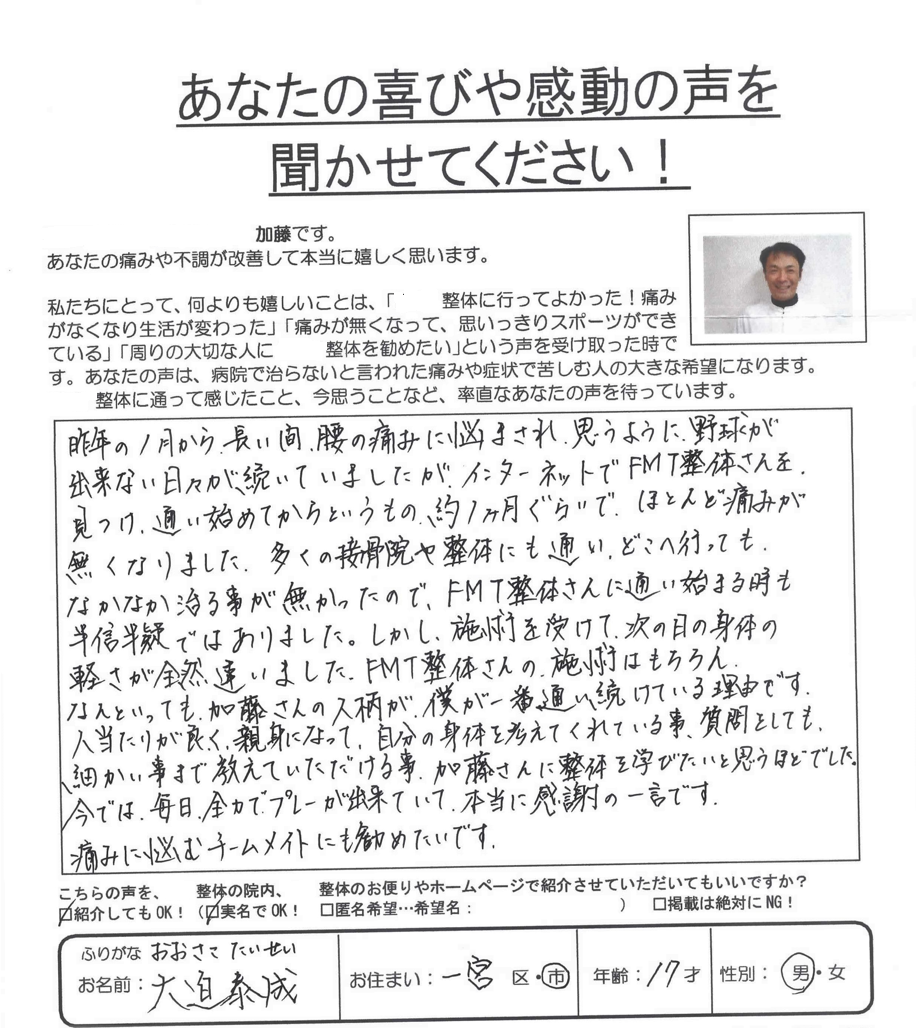 あなたの喜びや感動の声を
聞かせてください！
加藤です。
あなたの痛みや不調が改善して本当に嬉しく思います。
私たちにとって、何よりも嬉しいことは、「 整体に行ってよかった！痛み
がなくなり生活が変わった」「痛みが無くなって、思いっきりスポーツができ
ている」「周りの大切な人に 整体を勧めたい」という声を受け取った時で
す。あなたの声は、病院で治らないと言われた痛みや症状で苦しむ人の大きな希望になります。
整体に通って感じたこと、今思うことなど、率直なあなたの声を待っています。
昨年の1月から、長い間、腰の痛みに悩まされ、思うように、野球が
出来ない日々が続いていましたが、インターネットでFMT整体さんを、
見つけ、通い始めてからというもの、約1ヶ月ぐらいで、ほとんど痛みが
無くなりました。多くの接骨院や整体にも通い、どこへ行っても、
なかなか治る事が無かったので、FMT整体さんに通い始まる時も
半信半疑ではありました。しかし、施術を受けて、次の日の身体の
軽さが全然違いました。FMT整体さんの、施術はもちろん、
なんといっても、加藤さんの人柄が、僕が一番通い続けている理由です。
人当たりが良く、親身になって、自分の身体を考えてくれている事、質問としても、
細かい事まで教えていただける事、加藤さんに整体を学びたいと思うほどでした。
今では、毎日、全力でプレーが出来ていて、本当に感謝の一言です。
痛みに悩むチームメイトにも勧めたいです。
こちらの声を、 整体の院内、 整体のお便りやホームページで紹介させていただいてもいいですか？
☑紹介してもOK！（☑実名でOK！ □匿名希望…希望名： ） □掲載は絶対にNG！
ふりがな おおさこ たいせい
お名前：大迫泰成 お住まい：一宮 区・市 年齢：17才 性別：男・女